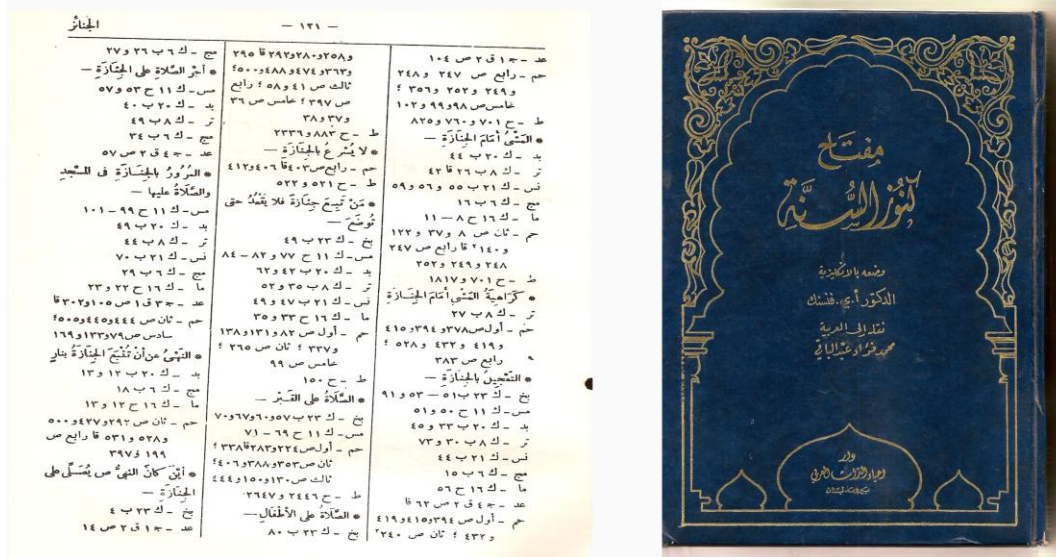 مفتاح
كنوز السنة
وضعه بالانكليزية
الدكتور أ. ي. فنسنك
نقله إلى العربية
محمد فؤاد عبد الباقي
دار
احياء التراث العربي
— ١٣١ —
الجنائز
عد - ج ١ ق ٢ ص ١٠٤
حم - رابع ص ٢٤٧ و ٢٤٨
و ٢٤٩ و ٢٥٢ و ٣٥٦ ؛
خامس ص ٩٨ و ٩٩ و ١٠٢
ط - ح ٧٠١ و ٧٦٠ و ٨٢٥
* المَشْىُ أمَامَ الجِنَازَةِ —
بد - ك ٢٠ ب ٤٤
تر - ك ٨ ب ٢٦ قا ٤٢
نس - ك ٢١ ب ٥٥ و ٥٦ و ٥٩
مج - ك ٦ ب ١٦
ما - ك ١٦ ح ٨ — ١١
حم - ثان ص ٨ و ٣٧ و ١٢٢
و ١٤٠ ٢ قا رابع ص ٢٤٧
و ٢٤٨ و ٢٤٩ و ٢٥٢
ط - ح ٧٠١ و ١٨١٧
* كَرَاهِيَةُ المَشْىِ أمَامَ الجِنَازَةِ
تر - ك ٨ ب ٢٧
حم - أول ص ٣٧٨ و ٣٩٤ و ٤١٥
و ٤١٩ و ٤٣٢ و ٥٢٨ ؛
رابع ص ٣٨٣
* التَّعْجِيلُ بالجِنَازَةِ —
بخ - ك ٢٣ ب ٥١ — ٥٣ و ٩١
مس - ك ١١ ح ٥٠ و ٥١
بد - ك ٢٠ ب ٣٣ و ٤٥
تر - ك ٨ ب ٣٠ و ٧٣
نس - ك ٢١ ب ٤٤
مج - ك ٦ ب ١٥
ما - ك ١٦ ح ٥٦
عد - ج ٤ ق ٢ ص ٦٢ قا
حم - أول ص ٣٩٤ و ٤١٥ و ٤١٩
و ٤٣٢ ؛ ثان ص ٢٤٠ ٢
و ٢٥٨ و ٢٨٠ و ٢٩٢ قا ٢٩٥
و ٣٦٣ و ٤٧٤ و ٤٨٨ و ٥٠٠ ؛
ثالث ص ٤١ و ٥٨ ؛ رابع
ص ٣٩٧ ؛ خامس ص ٣٦
و ٣٧ و ٣٨
ط - ح ٨٨٣ و ٢٣٣٦
* لا يُسْرعُ بالجِنَازَةِ —
حم - رابع ص ٤٠٣ قا ٤٠٦ و ٤١٢
ط - ح ٥٢١ و ٥٢٢
* مَنْ تَبِعَ جِنَازَةً فَلا يَقْعُدُ حتى
تُوضَعَ —
بخ - ك ٢٣ ب ٤٩
مس - ك ١١ ح ٧٧ و ٨٢ — ٨٤
بد - ك ٢٠ ب ٤٢ و ٦٢
تر - ك ٨ ب ٣٥ و ٥٢
نس - ك ٢١ ب ٤٧ و ٤٩
ما - ك ١٦ ح ٣٣ و ٣٥
حم - أول ص ٨٢ و ١٣١ و ١٣٨
و ٣٣٧ ؛ ثان ص ٢٦٥ ؛
خامس ص ٩٩
ط - ح ١٥٠
* الصَّلاةُ على القَبْرِ —
بخ - ك ٢٣ ب ٥٧ و ٦٠ و ٦٧ و ٧٠
مس - ك ١١ ح ٦٩ — ٧١
حم - أول ص ٢٢٤ و ٢٨٣ قا ٣٣٨ ؛
ثان ص ٣٥٣ و ٣٨٨ و ٤٠٦ ؛
ثالث ص ١٣٠ و ١٥٠ و ٤٤٤
ط - ح ٢٤٤٦ و ٢٦٤٧
* الصَّلاةُ على الأطْفَالِ —
بخ - ك ٢٣ ب ٨٠
مج - ك ٦ ب ٢٦ و ٢٧
* أجْرُ الصَّلاةِ على الجِنَازَةِ —
مس - ك ١١ ح ٥٣ و ٥٧
بد - ك ٢٠ ب ٤٠
تر - ك ٨ ب ٤٩
مج - ك ٦ ب ٣٤
عد - ج ٤ ق ٢ ص ٥٧
* المُرُورُ بالجِنَازَةِ فى المَسْجِدِ
والصَّلاةُ عليها —
مس - ك ١١ ح ٩٩ — ١٠١
بد - ك ٢٠ ب ٤٩
تر - ك ٨ ب ٤٤
نس - ك ٢١ ب ٧٠
مج - ك ٦ ب ٢٩
ما - ك ١٦ ح ٢٢ و ٢٣
عد - ج ٣ ق ١ ص ١٠٥ و ٣٠٢ قا
حم - ثان ص ٤٤٤ و ٤٤٥ و ٥٠٥ ؛
سادس ص ٧٩ و ١٣٣ و ١٦٩
* النَّهْىُ عن أنْ تُتْبَعَ الجِنَازَةُ بنارٍ
بد - ك ٢٠ ب ١٢ و ١٣
مج - ك ٦ ب ١٨
ما - ك ١٦ ح ١٢ و ١٣
حم - ثان ص ٢٩٢ و ٤٢٧ و ٥٠٠
و ٥٢٨ و ٥٣١ قا رابع ص
١٩٩ و ٣٩٧
* أيْنَ كانَ النبىُّ ص يُصَلِّى على
الجِنَازَةِ —
بخ - ك ٢٣ ب ٤
عد - ج ١ ق ٢ ص ١٤